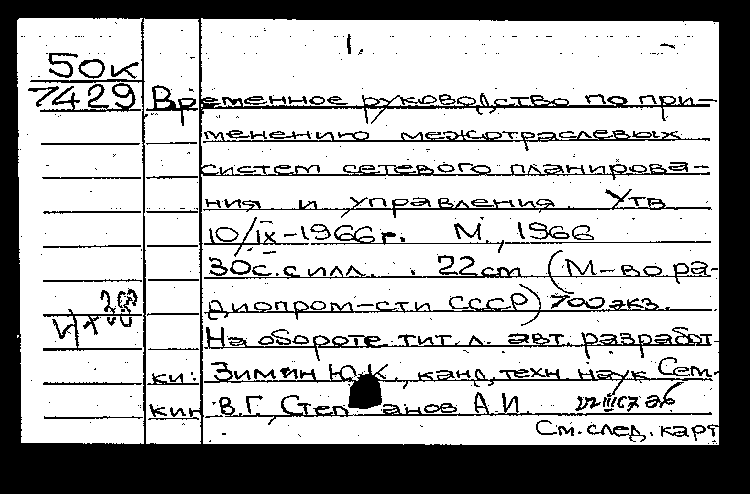 1.
50к
7429 Временное руководство по при-
менению межотраслевых
систем сетевого планирова-
ния и управления. Утв.
10/IX-1966г. М., 1966
30с. с илл. . 22 см (М-во ра-
диопром-сти СССР) 700 экз.
На обороте тит. л. авт. разработ-
ки: Зимин Ю.К., канд. техн. наук Сем-
кин В.Г., Степанов А.И.
См. след. карт